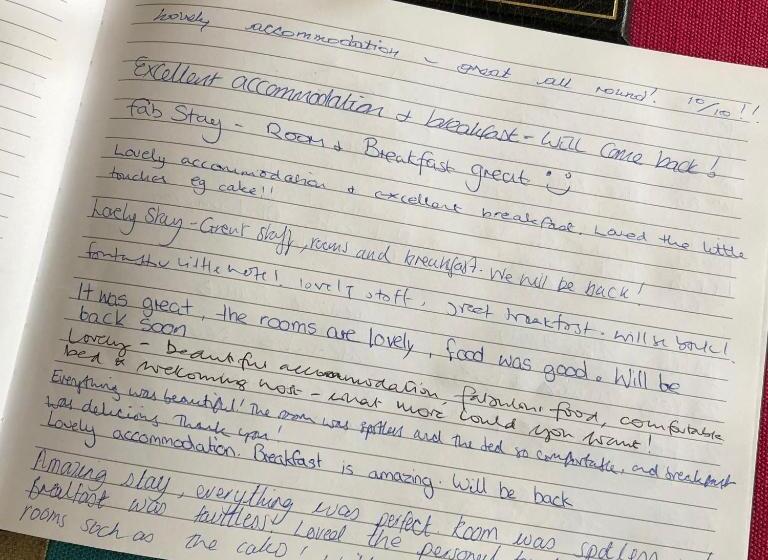 Lovely accommodation - great all round! 10/10!!
Excellent accommodation & breakfast - Will come back!
Fab Stay - Room & Breakfast great :)
Lovely accommodation & excellent breakfast. Loved the little
touches eg cake!!
Lovely Stay - Great staff, rooms and breakfast. We will be back!
fantastic little hotel! lovely staff, great breakfast. will be back!
It was great, the rooms are lovely, food was good. Will be
back soon
Lovely - beautiful accommodation, fabulous food, comfortable
bed & welcoming host - what more could you want!
Everything was beautiful! The room was spotless and the bed so comfortable, and breakfast
was delicious. Thank you!
Lovely accommodation. Breakfast is amazing. Will be back
Amazing stay, everything was perfect Room was spotless
Breakfast was faultless Loved the personal
rooms such as the cake!